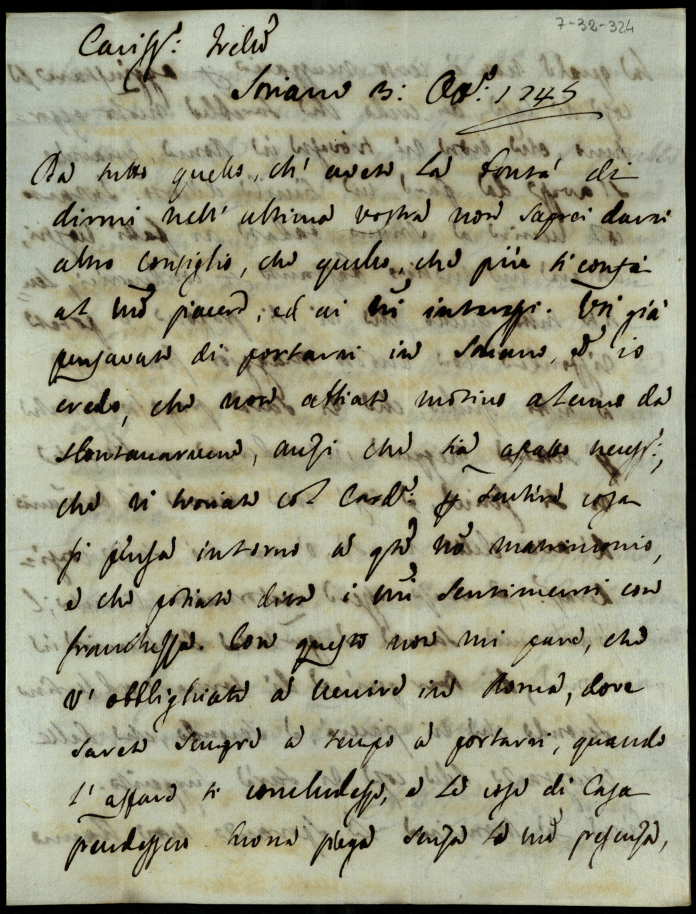 7-32-324
Cariss.º
Soriano 3: 1745
Da tutto quello, ch' avete la bontà di
dirmi nell' ultima vostra non saprei darvi
altro consiglio, che quello, che più si confà
al vrõ piacere, ed ai vrĩ interessi. Voi già
pensavate di portarvi in Soriano, ed io
credo, che non abbiate motivo alcuno da
slontanarvene, anzi che sia affatto necess.º,
che vi troviate col Card.le p sentire cosa
si pensa intorno a qto vrõ matrimonio,
e che potiate dire i vrĩ sentimenti con
franchezza. Con questo non mi pare, che
v' obblighiate a venire in Roma, dove
sarete sempre a tempo a portarvi, quando
l' affare si concludesse, e le cose di Casa
prendessero buona piega senza la vrã presenza,